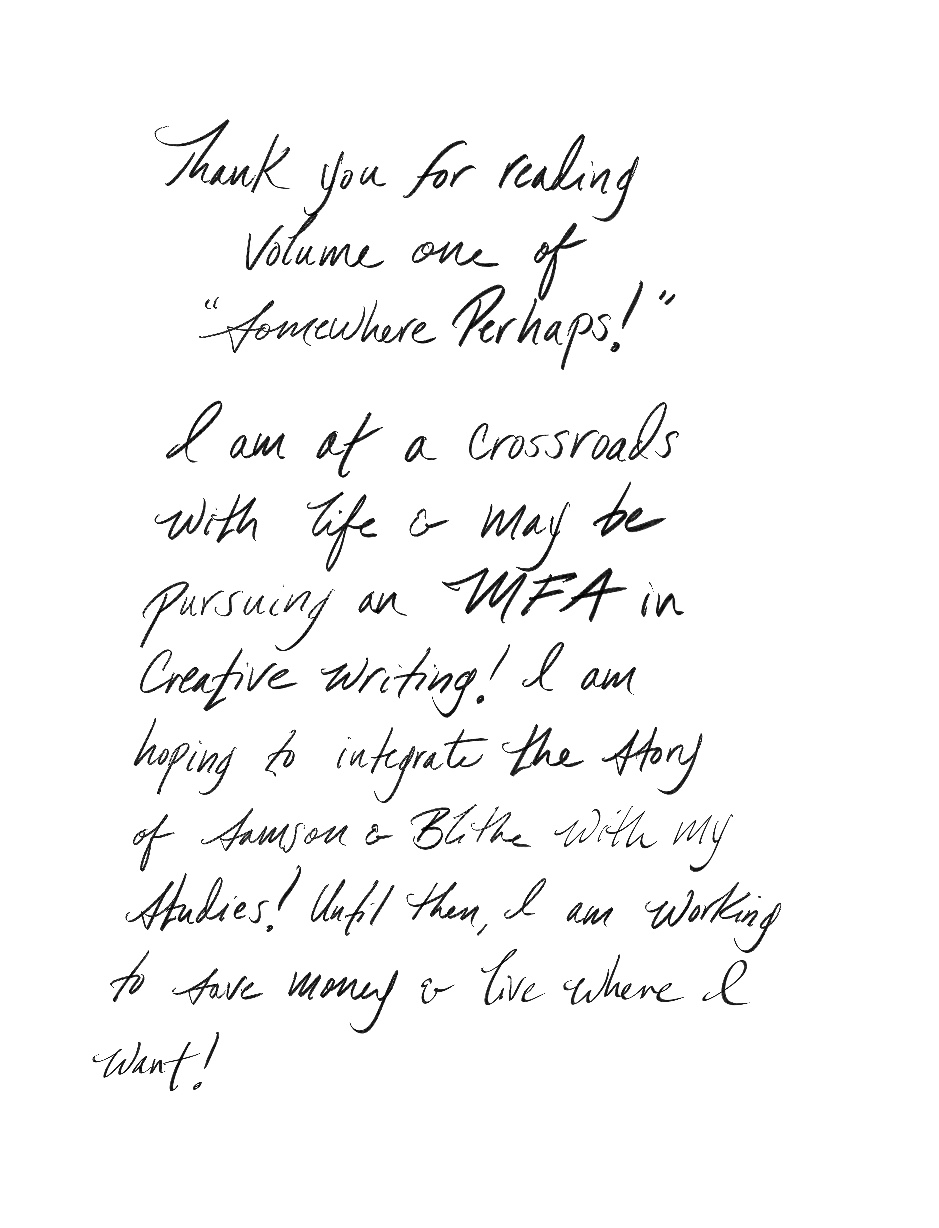 Thank you for reading
Volume one of
"Somewhere Perhaps!"
I am at a crossroads
with life & may be
pursuing an MFA in
Creative writing! I am
hoping to integrate the story
of Samson & Blithe with my
studies! Until then, I am working
to save money & live where I
want!